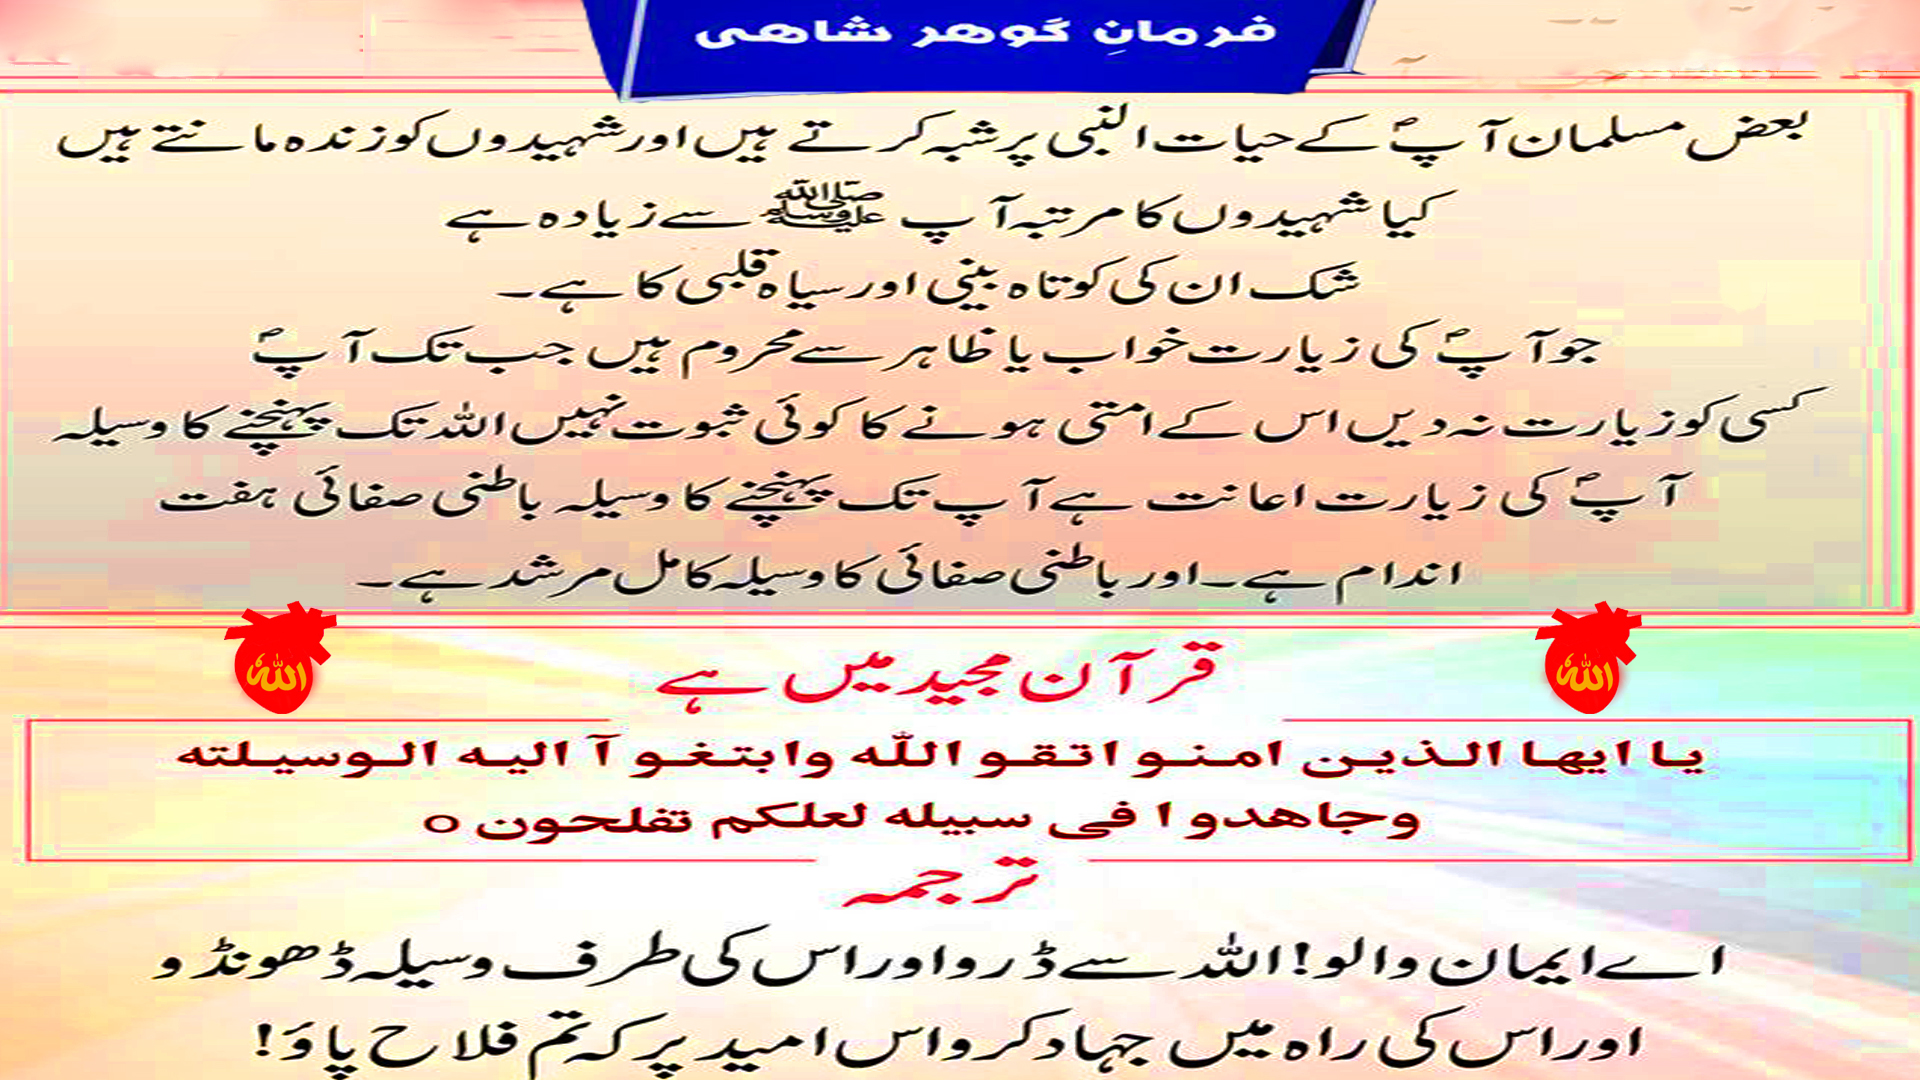 فرمانِ گوھر شاھی
بعض مسلمان آپؐ کے حیات النبی پر شبہ کرتے ہیں اور شہیدوں کو زندہ مانتے ہیں
کیا شہیدوں کا مرتبہ آپ ﷺ سے زیادہ ہے
شک ان کی کوتاہ بینی اور سیاہ قلبی کا ہے۔
جو آپؐ کی زیارت خواب یا ظاہر سے محروم ہیں جب تک آپؐ
کسی کو زیارت نہ دیں اس کے امتی ہونے کا کوئی ثبوت نہیں اللہ تک پہنچنے کا وسیلہ
آپؐ کی زیارت اعانت ہے آپ تک پہنچنے کا وسیلہ باطنی صفائی ہفت
اندام ہے۔ اور باطنی صفائی کا وسیلہ کامل مرشد ہے۔
اللہ
اللہ
قرآن مجید میں ہے
یا ایھا الذین امنو اتقو اللّٰہ وابتغو آ الیہ الوسیلتہ
وجاھدو ا فی سبیلہ لعلکم تفلحون o
ترجمہ
اے ایمان والو! اللہ سے ڈرو اور اس کی طرف وسیلہ ڈھونڈو
اور اس کی راہ میں جہاد کرو اس امید پر کہ تم فلاح پاؤ!